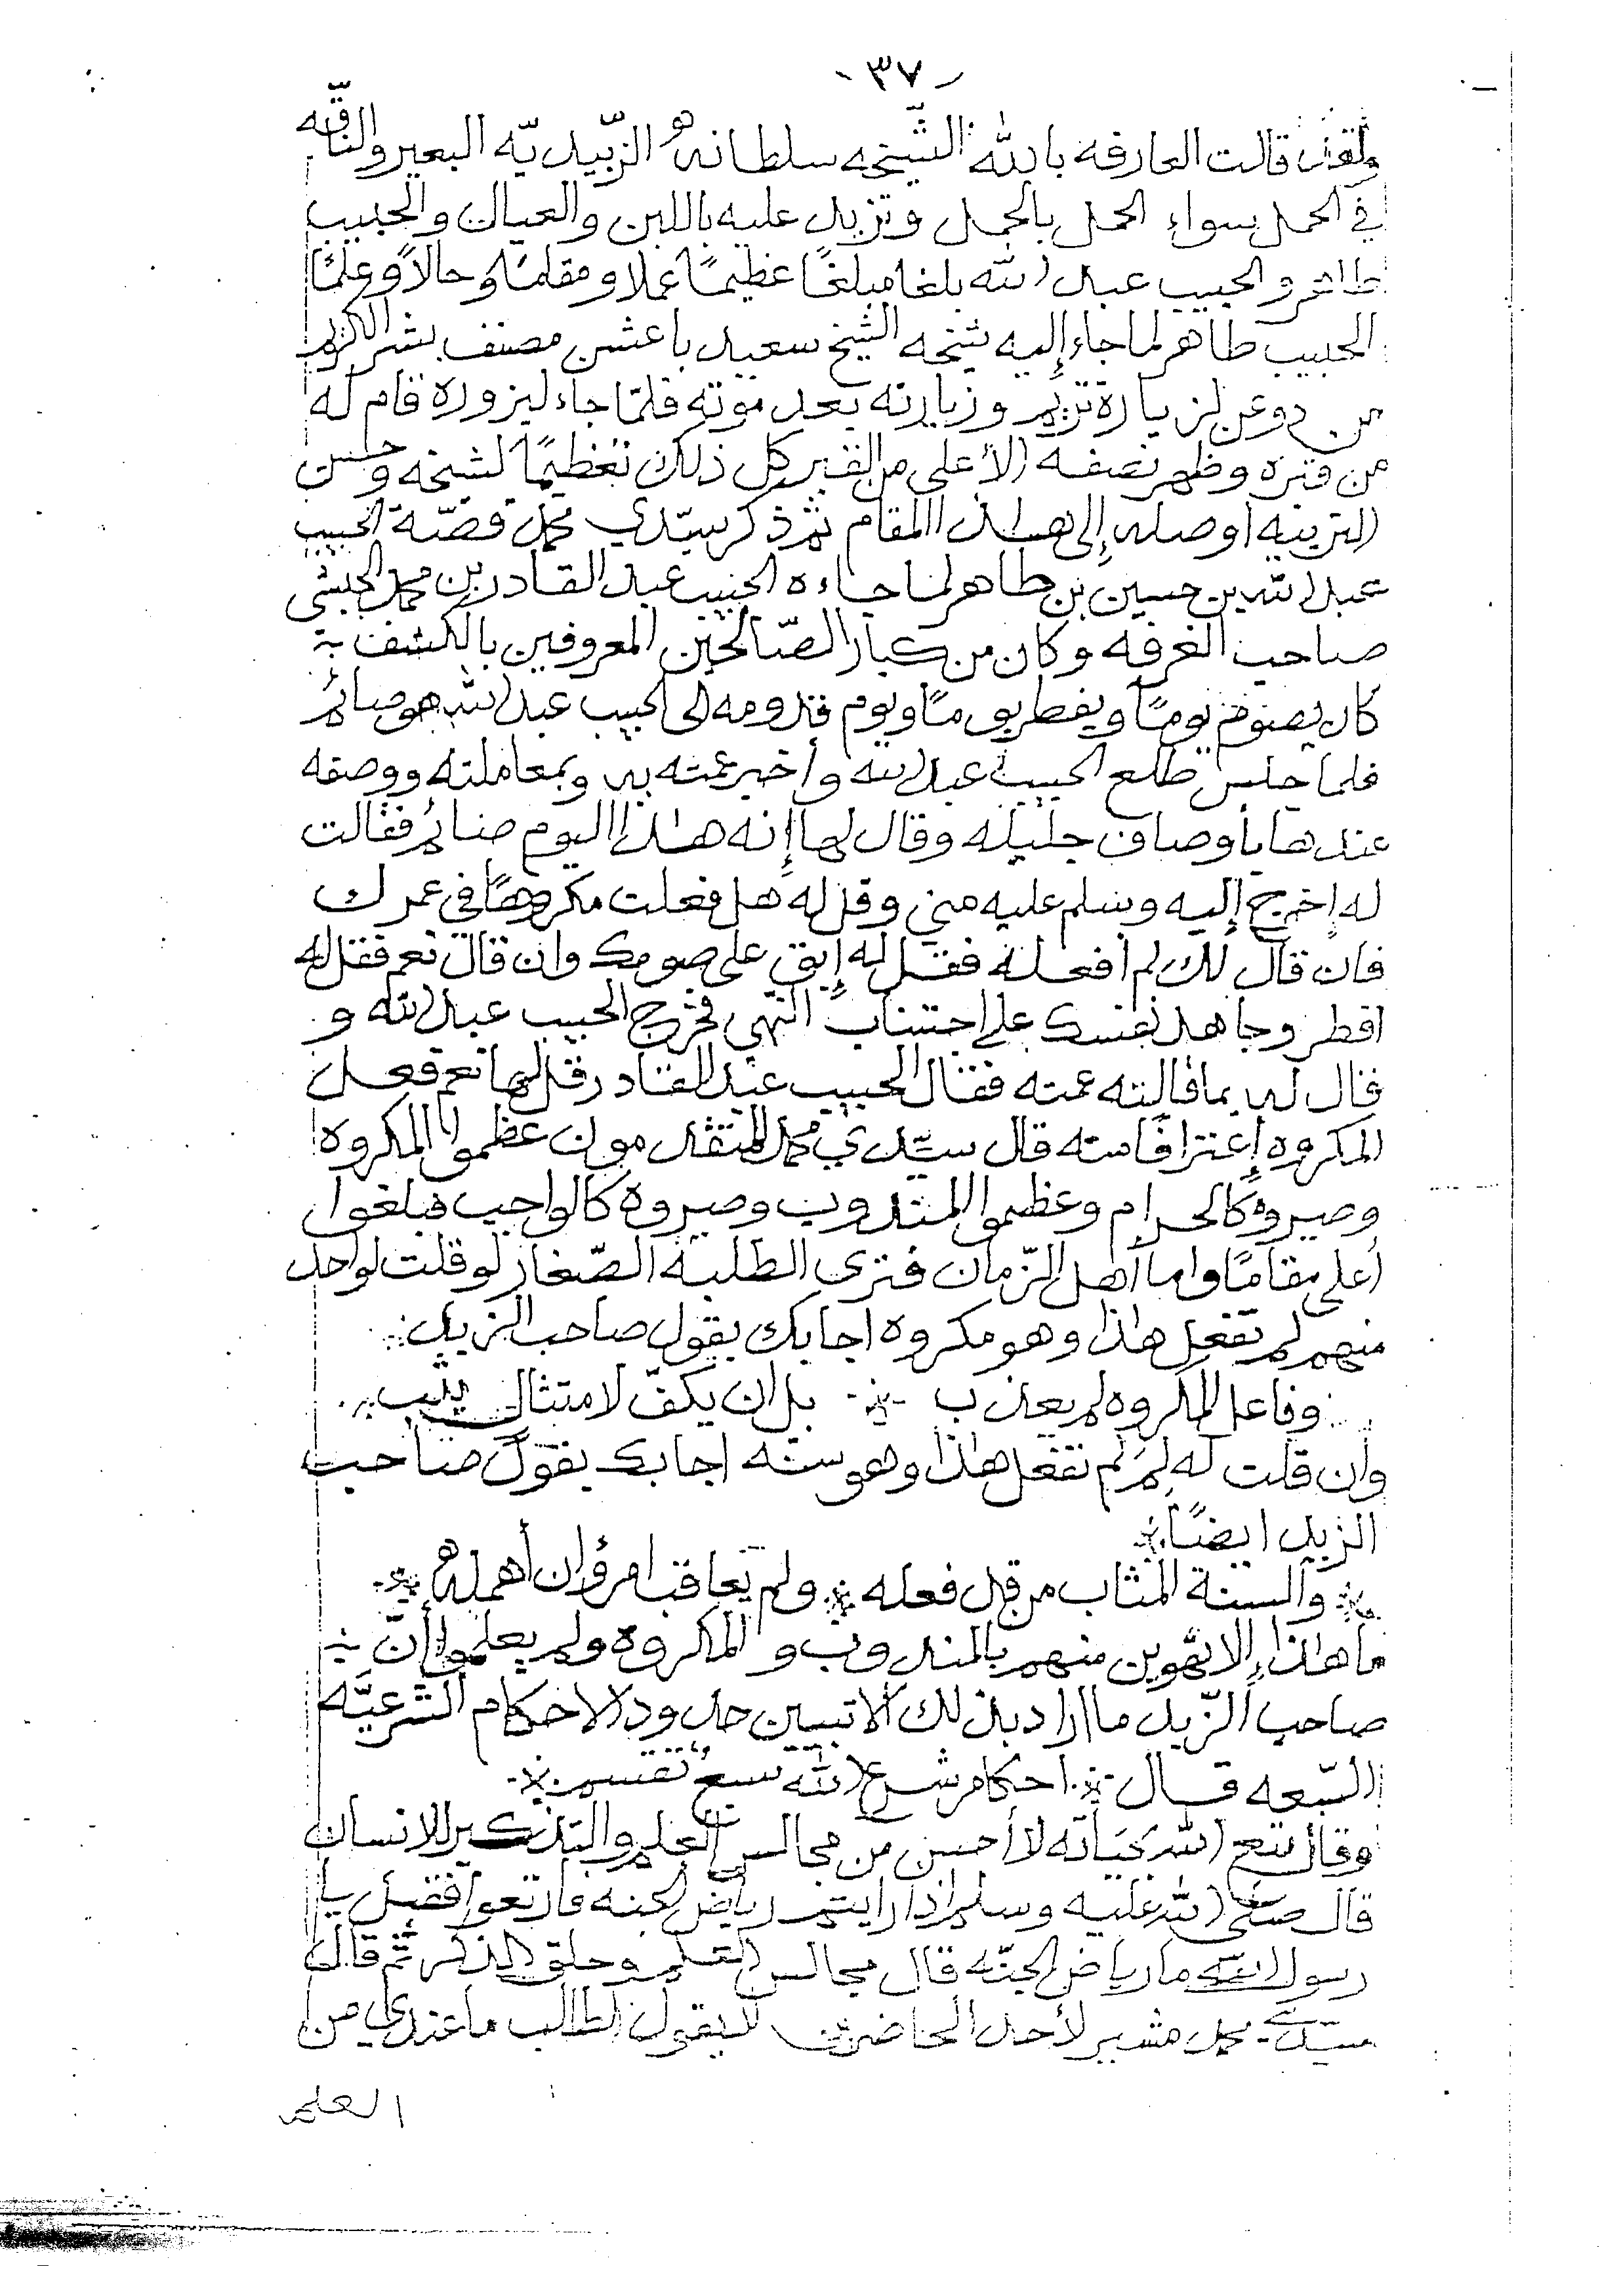 -٣٧-
ولقد قالت العارفه بالله الشيخه سلطانه الزّبيديّه البعير والناقّه
في الحمل سواء الحمل بالحمل وتزيد عليه باللبن والعيال والحبيب
طاهر والحبيب عبد الله بلغا مبلغًا عظيمًا عملا ومقامًا وحالاً وعلمًا
الحبيب طاهر لما جاء إليه شيخه الشيخ سعيد باعشن مصنف بشر الكريم
من دوعن لزيارة تريم وزيارته بعد موته فلمّا جاء ليزوره قام له
من قبره وظهر نصفه الأعلى من القبر كل ذلك تعظيمًا لشيخه وحسن
التربيه اوصله إلى هـذا المقام ثم ذكر سيّدي محمد قصّة الحبيب
عبد الله بن حسين بن طاهر لما جاءه الحبيب عبد القادر بن محمد الحبشي
صاحب الغرفه وكان من كبار الصّالحين المعروفين بالكشف
كان يصوم يومًا ويفطر يومًا ويوم قدومه الى الحبيب عبد الله هو صائم
فلما جلس طلع الحبيب عبد الله وأخبر عمته به وبمعاملته ووصفه
عندها بأوصاف جليله وقال لها إنه هـذا اليوم صائم فقالت
له إخرج إليه وسلم عليه مني وقل له هل فعلت مكروهًا في عمرك
فان قال لك لم أفعله فقل له إبق على صومك وان قال نعم فقل له
افطر وجاهد نفسك على اجتناب النّهي فخرج الحبيب عبد الله و
قال له بما قالته عمته فقال الحبيب عبد القادر قل لها نعم فعل
المكروه إعترافًا منه قال سيّدي محمد المتقدمون عظموا المكروه
وصيروه كالحرام وعظموا المندوب وصيروه كالواجب فبلغوا
أعلى مقامًا واما أهل الزّمان فترى الطلبه الصّغار لو قلت لواحد
منهم لم تفعل هذا وهو مكروه اجابك بقول صاحب الزبد
وفاعل المكروه لم يعذب * بل ان يكفّ لامتثال يثب
وان قلت له لِمَ لم تفعل هذا وهو سنّه اجابك بقول صاحب
الزبد ايضًا *
* والسنة المثاب من قد فعله * ولم يعاقب امرؤ ان أهمله *
ما هذا إلا تهوين منهم بالمندوب والمكروه ولم يعلموا أنّ
صاحب الزّبد ما اراد بذلك الا تبيين حدود الاحكام الشرعيّه
السّبعه قـال * احكام شرع الله سبع تقسم *
وقال متع الله بحياته لا أحسن من مجالس العلم والتذكير للانسان
قال صلى الله عليه وسلم إذا رايتم رياض الجنه فارتعوا فقيل يا
رسول الله ما رياض الجنّه قال مجالس العلم وحلق الذكر ثم قال
سيّدي محمد مشير لأحد الحاضرين لا يقول الطالب ما عندي من
العلم